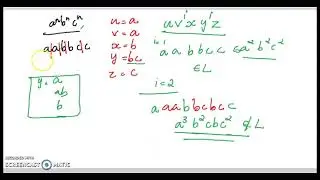 aⁿbⁿcⁿ
aabbcc
y = a
ab
b
u = a
v = a
x = b
y = bc
z = c
uvⁱxyⁱz
i=1 aabbcc ∈ a²b²c²
∈ L
i = 2
aaabbcbcc
a³b²cbc² ∉ L
RECORDED WITH
SCREENCAST MATIC